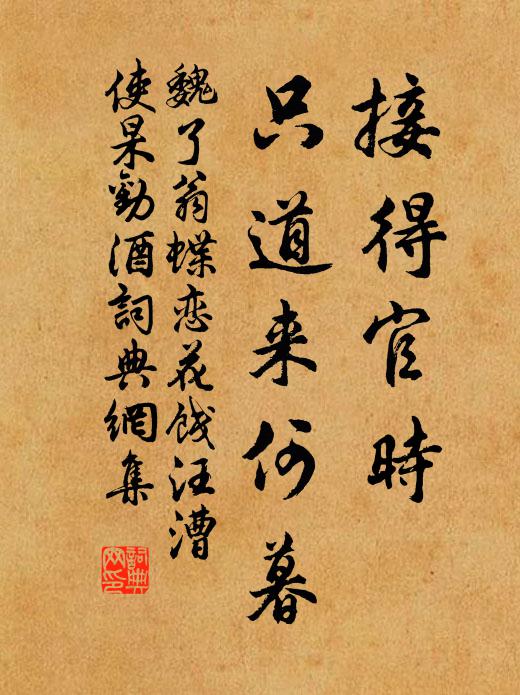 接得官时
只道来何暮
魏了翁蝶恋花饯汪漕
使杲劝酒词典网集
词典网印